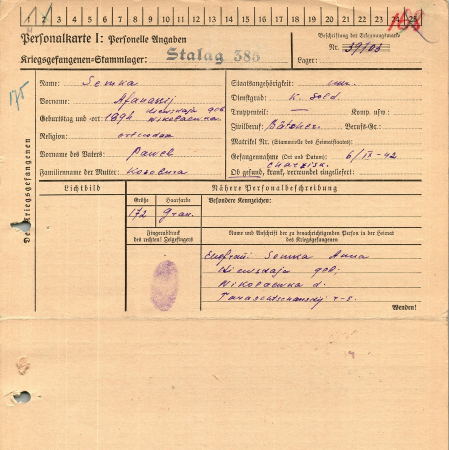 1 2 3 4 5 6 7 8 9 10 11 12 13 14 15 16 17 18 19 20 21 22 23 24 25
Personalkarte I: Personelle Angaben
Kriegsgefangenen-Stammlager: Stalag 385
Beschriftung der Erkennungsmarke
Nr. 39703
Lager:
175
Des Kriegsgefangenen
Name: Semka
Vorname: Afanasij
Geburtstag und -ort: 1894 Kiewskaja geb. Nikolaewka
Religion: ortodox
Vorname des Vaters: Pawel
Familienname der Mutter:
Staatsangehörigkeit:
Dienstgrad: K. Sold.
Truppenteil: — Komp. usw.:
Zivilberuf: Bötcher Berufs-Gr.:
Matrikel Nr. (Stammrolle des Heimatstaates):
Gefangennahme (Ort und Datum): 6/IX-42
Ob gesund, krank, verwundet eingeliefert:
Lichtbild
Nähere Personalbeschreibung
Größe
Haarfarbe
Besondere Kennzeichen:
172
Grau.
Fingerabdruck
des rechten! Zeigefingers
Name und Anschrift der zu benachrichtigenden Person in der Heimat
des Kriegsgefangenen
Ehefrau: Semka Anna
Kiewskaja geb.
Nikolaewka d.
Wenden!